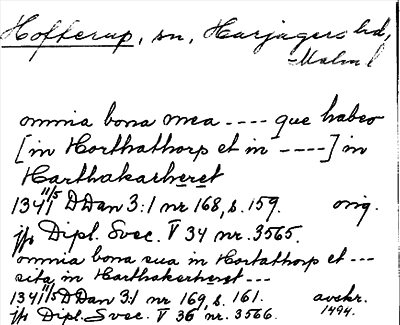 Hofterup, sn, Harjagers hd,
Malm l
omnia bona mea ---- que habeo
[in Horthathorp et in ----] in
Harthakarheret
1341 11/5 DDan 3:1 nr 168, s. 159. orig.
jfr Dipl. Svec. V 34 nr. 3565.
omnia bona sua in Hortathorp et ---
sita in Harthakerheret ---
1341 11/5 DDan 3:1 nr 169, s. 161. avskr.
jfr Dipl. Svec. V 36 nr. 3566. 1494.